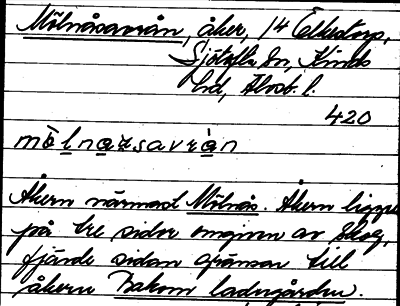 Mölnåsavrån, åker, 14 Elkestorp,
Sjötofta sn, Kinds
hd, Älvsb. l.
420
mö̀lnaʀsavrán
Åkern närmast Mölnås. Åkern ligger
på tre sidor omgiven av skog,
fjärde sidan gränsar till
åkern Bakom ladugården.